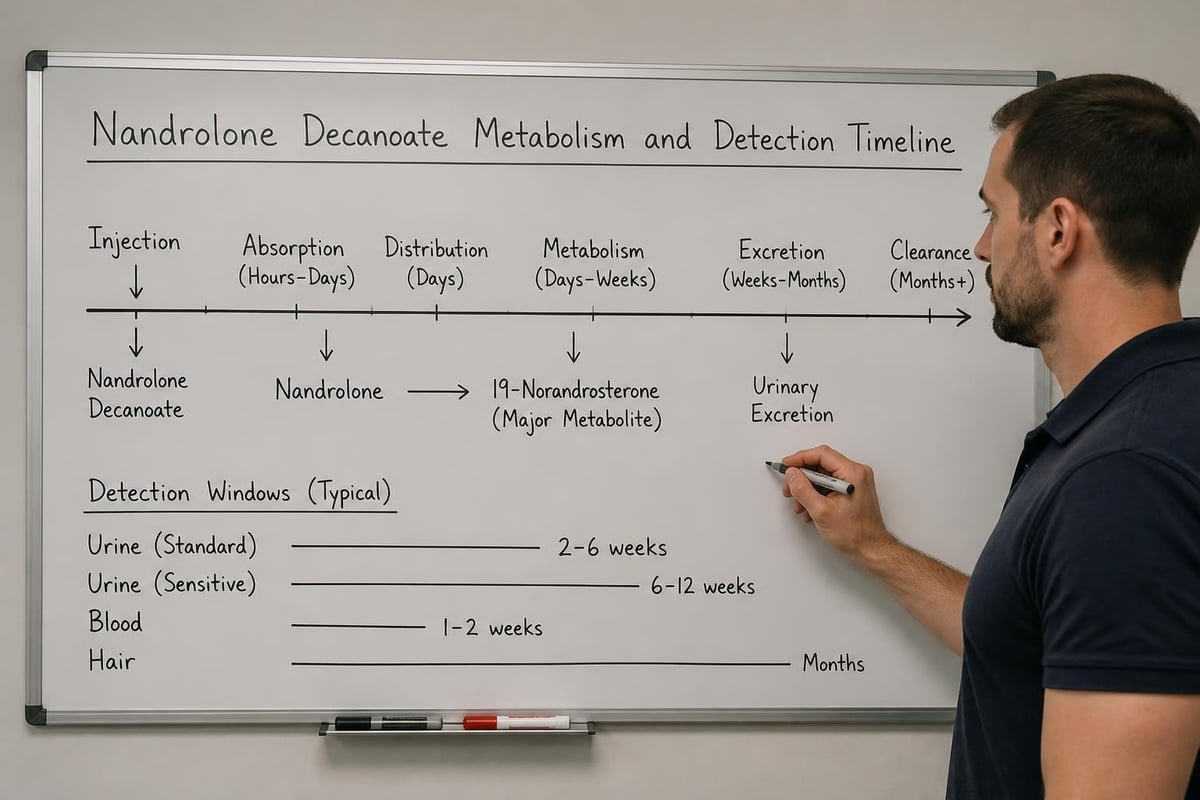 Nandrolone Decanoate Metabolism and Detection Timeline
Injection
Absorption
(Hours-Days)
Distribution
(Days)
Metabolism
(Days-Weeks)
Excretion
(Weeks-Months)
Clearance
(Months+)
Nandrolone
Decanoate
Nandrolone
19-Norandrosterone
(Major Metabolite)
Urinary
Excretion
Detection Windows (Typical)
Urine (Standard) 2-6 weeks
Urine (Sensitive) 6-12 weeks
Blood 1-2 weeks
Hair Months